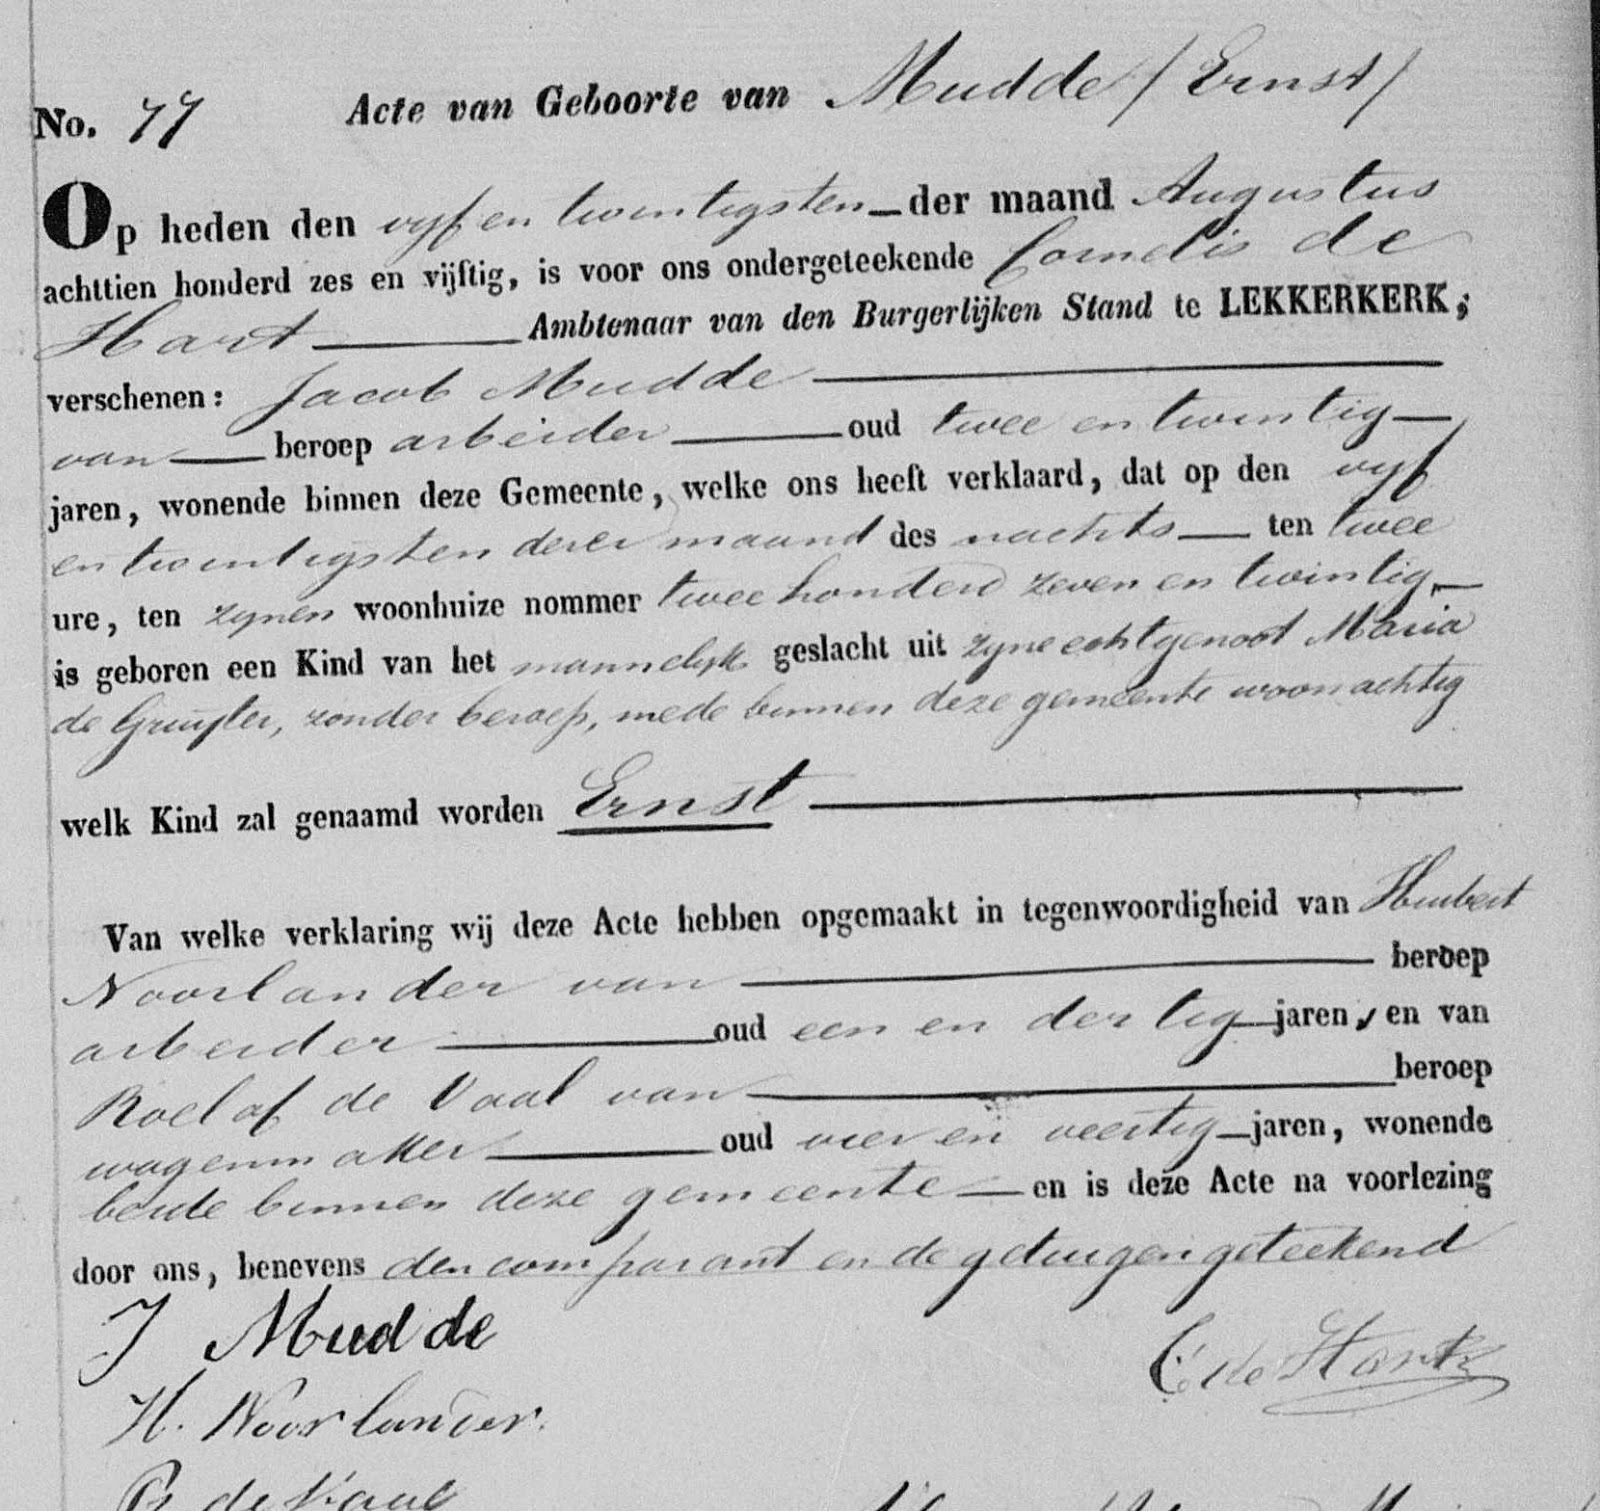 No. 77 Acte van Geboorte van Mudde / Ernst /
Op heden den vyf en twintigsten der maand Augustus
achttien honderd zes en vijftig, is voor ons ondergeteekende Cornelis de
Hart Ambtenaar van den Burgerlijken Stand te LEKKERKERK;
verschenen: Jacob Mudde
van beroep arbeider oud twee en twintig
jaren, wonende binnen deze Gemeente, welke ons heeft verklaard, dat op den vyf
en twintigsten dezer maand des nachts ten twee
ure, ten zynen woonhuize nommer twee honderd zeven en twintig
is geboren een Kind van het mannelyk geslacht uit zyne echtgenoot Maria
de Gruyter, zonder beroep, mede binnen deze gemeente woonachtig
welk Kind zal genaamd worden Ernst
Van welke verklaring wij deze Acte hebben opgemaakt in tegenwoordigheid van Huibert
Noorlander van beroep
arbeider oud een en dertig jaren, en van
Roelof de Vaal van beroep
wagenmaker oud vier en veertig jaren, wonende
beide binnen deze gemeente en is deze Acte na voorlezing
door ons, benevens den comparant en de getuigen geteekend
J Mudde
C: de Hart
H. Noorlander.
R de Vaal